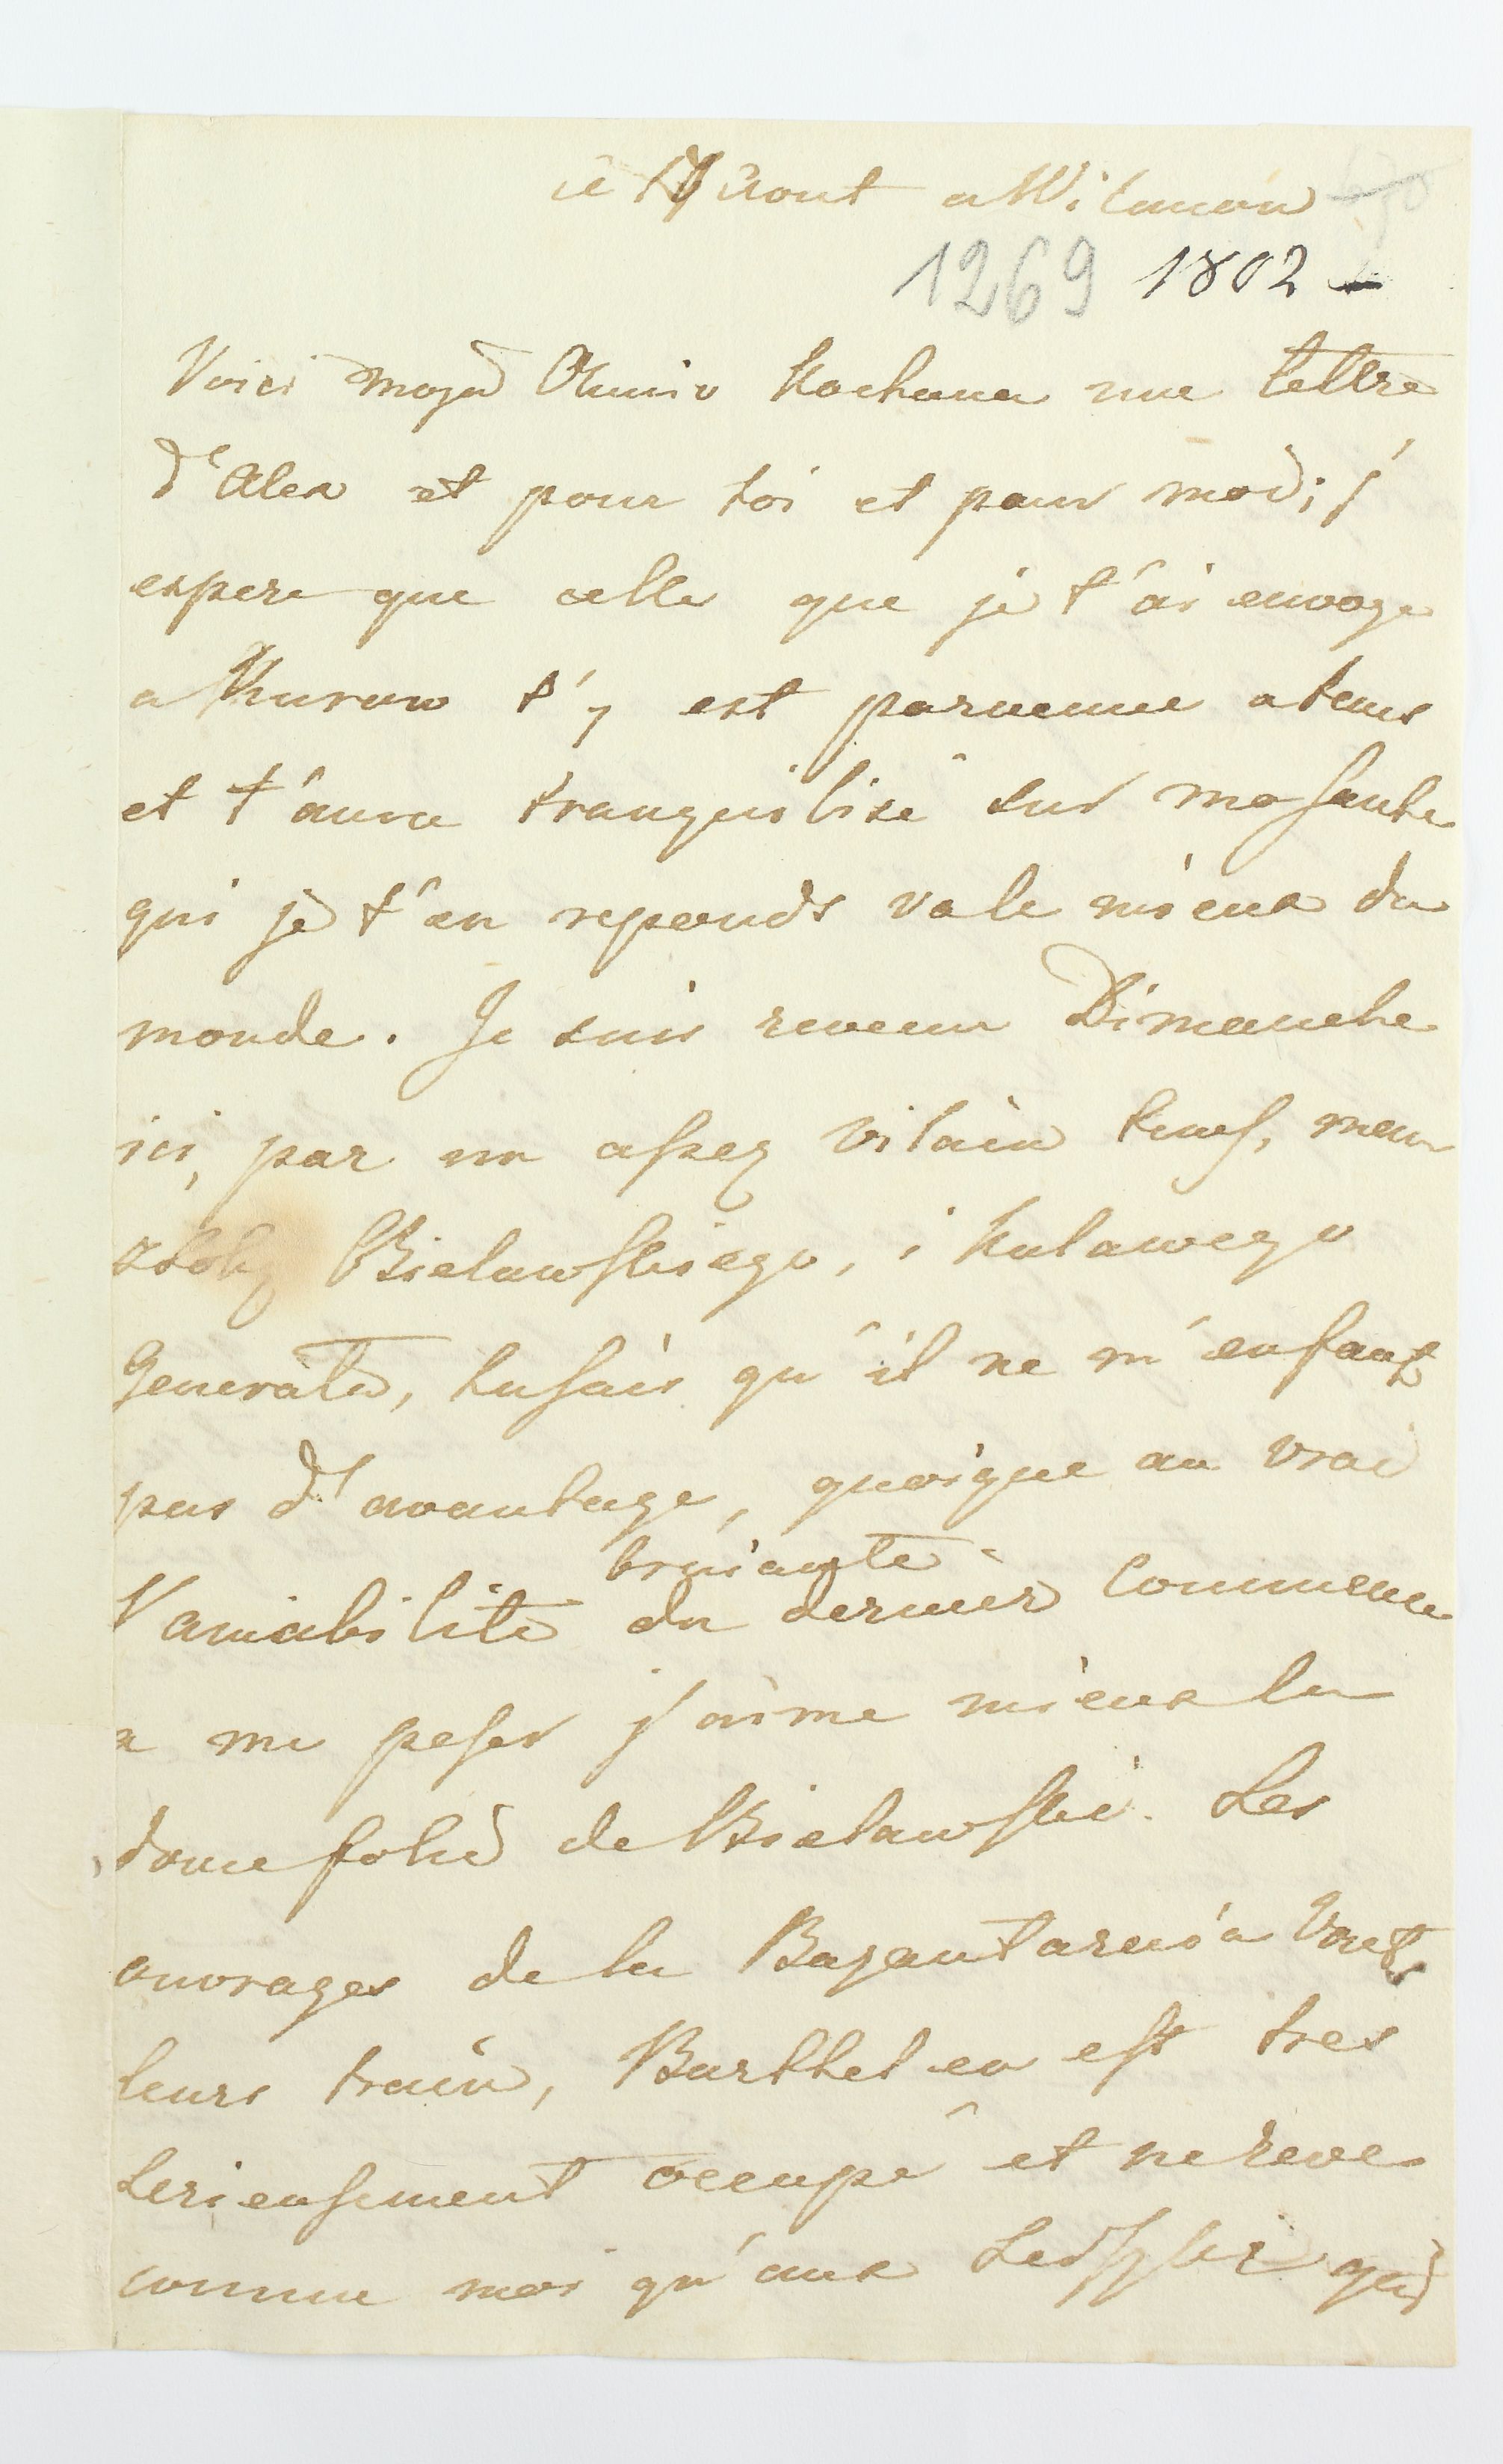 ce 17 Aout a Wilanow
1269 1802
Voici moja Olunio Kochana une lettre
d'Alex et pour toi et pour moi; j'
espere que celle que je t'ai envoye
a Kurow t'y est parvenue a tems
et t'aura tranquilisé sur ma sante
qui je t'en reponds va le mieux du
monde. Je suis revenu Dimanche
ici, par un assez vilain tems, mam
z sobą Bielawskiego, i Kulawego
Generala, tu sais qu'il ne m'en faut
pas d'avantage, quoique au vrai
bruiante
l'amiabilité du dernier commence
a me peser j'aime mieux la
douce folie de Bielawski. Les
ouvrages de la Bazantarnia vont
leurs train, Barthel en est tres
serieusement occupé et ne reve
comme moi qu'aux qui